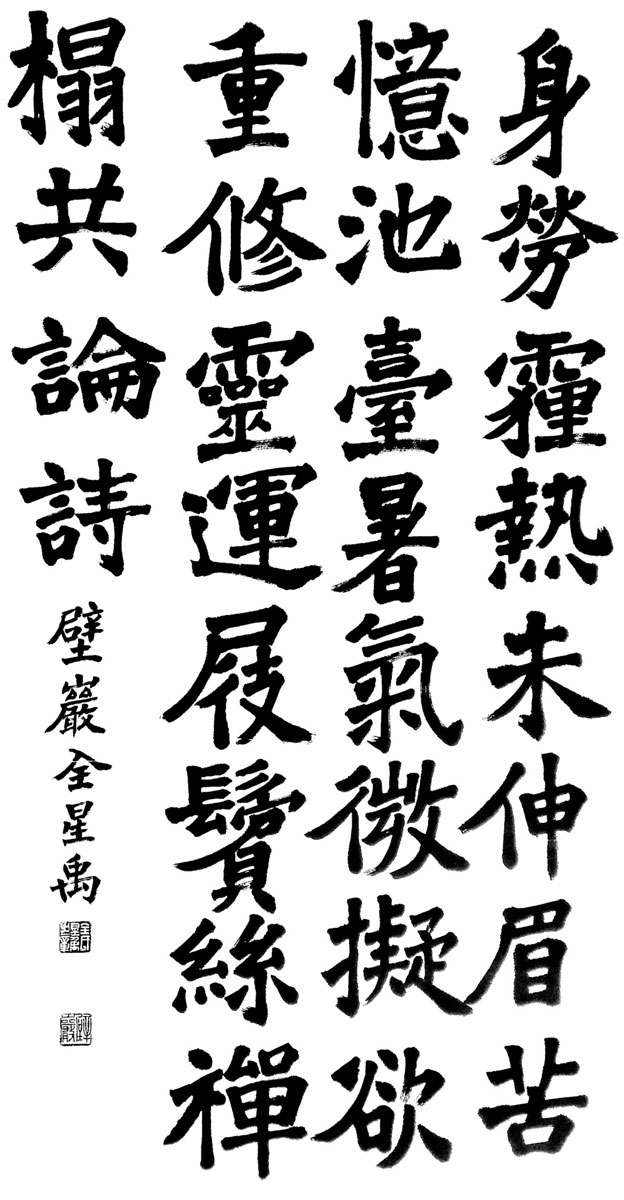 身勞霾熱未伸眉苦
憶池臺暑氣微擬欲
重修靈運屐鬢絲禪
榻共論詩
壁巖全星禹